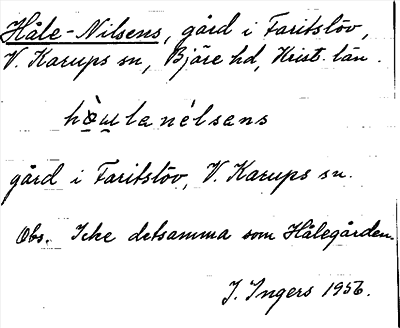 Håle-Nilsens, gård i Faritslöv,
V. Karups sn, Bjäre hd, Krist. län.
hò̤u̠lanélsens
gård i Faritslöv, V. Karups sn.
Obs. Icke detsamma som Hålegården.
J. Ingers 1956.